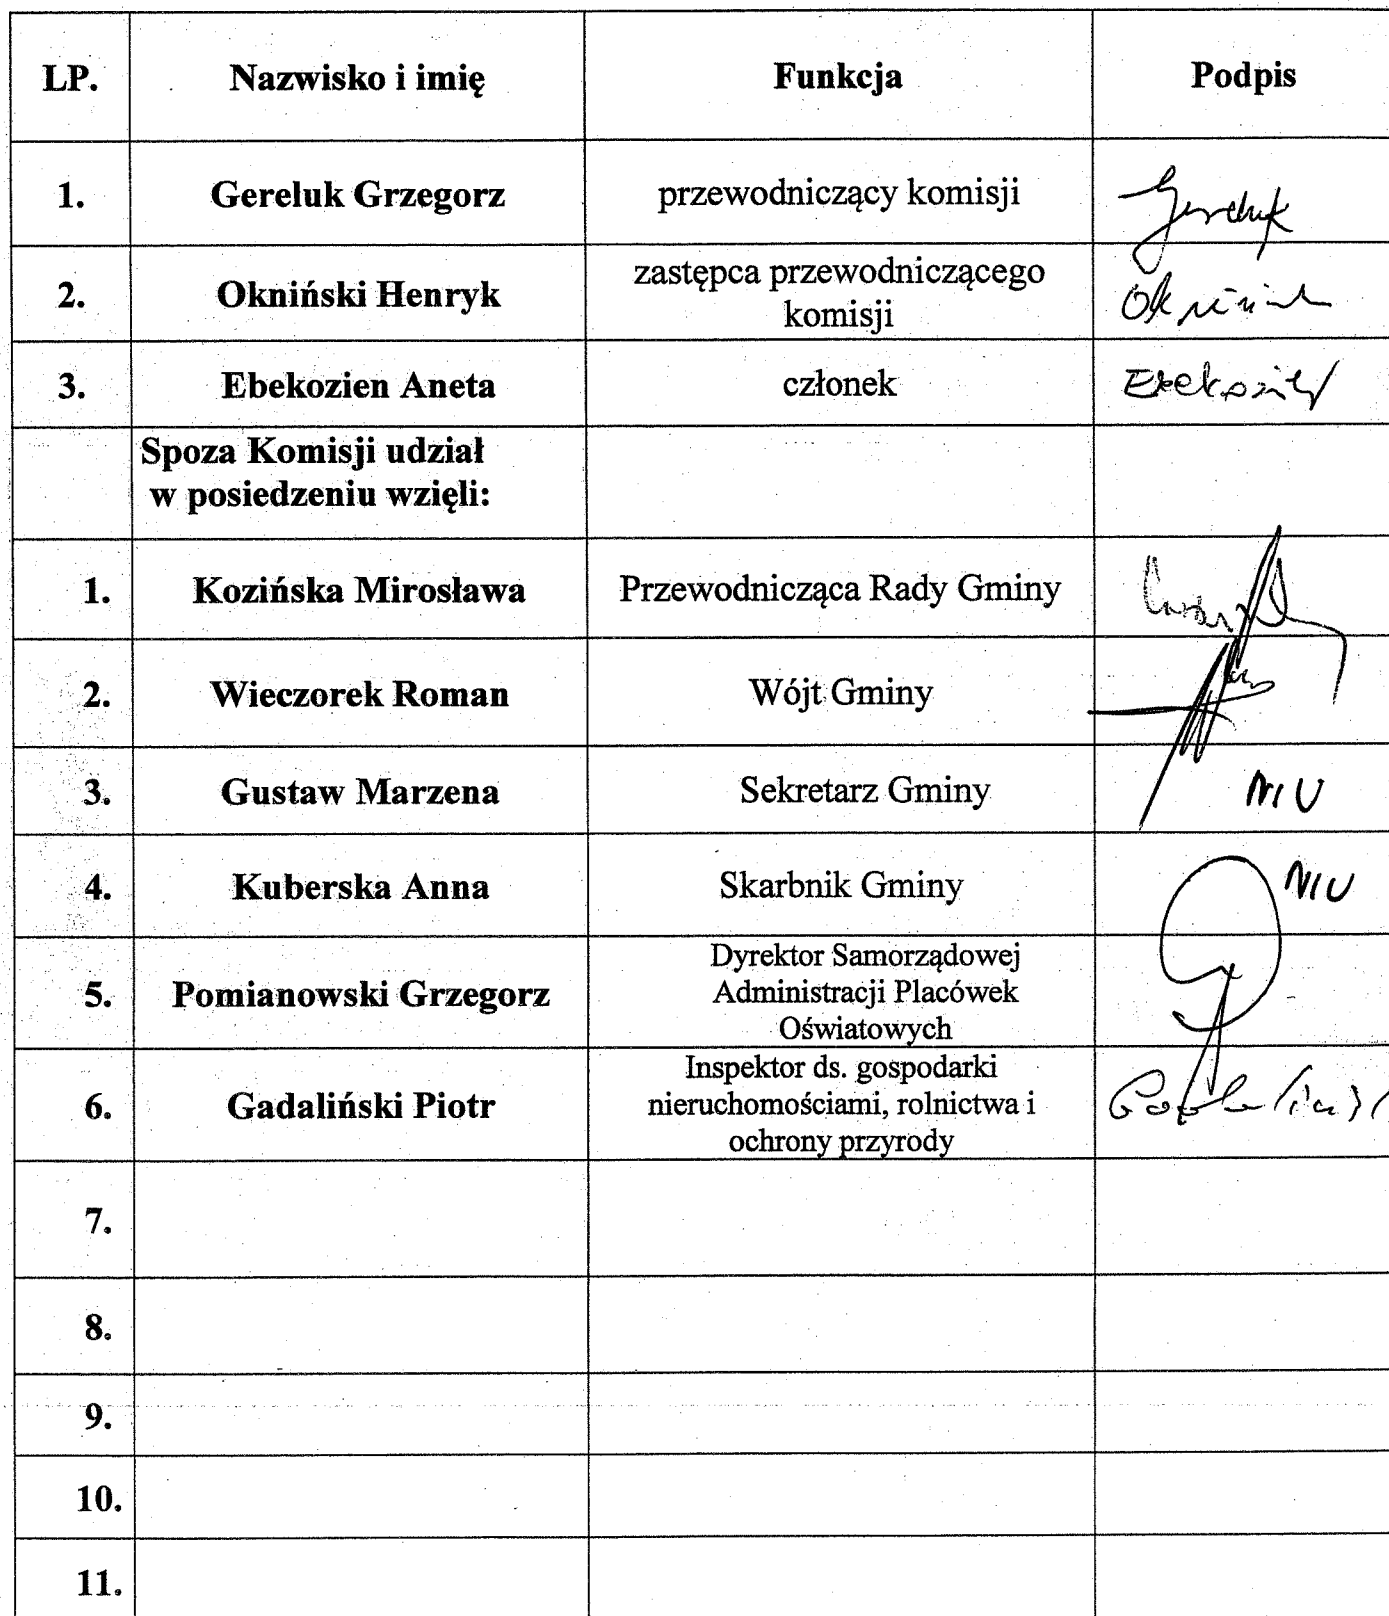 LP. Nazwisko i imię Funkcja Podpis
1. Gereluk Grzegorz przewodniczący komisji Gereluk
2. Okniński Henryk zastępca przewodniczącego
komisji
3. Ebekozien Aneta członek
Spoza Komisji udział
w posiedzeniu wzięli:
1. Kozińska Mirosława Przewodnicząca Rady Gminy
2. Wieczorek Roman Wójt Gminy
3. Gustaw Marzena Sekretarz Gminy NIU
4. Kuberska Anna Skarbnik Gminy NIU
5. Pomianowski Grzegorz Dyrektor Samorządowej
Administracji Placówek
Oświatowych
6. Gadaliński Piotr Inspektor ds. gospodarki
nieruchomościami, rolnictwa i
ochrony przyrody
7.
8.
9.
10.
11.